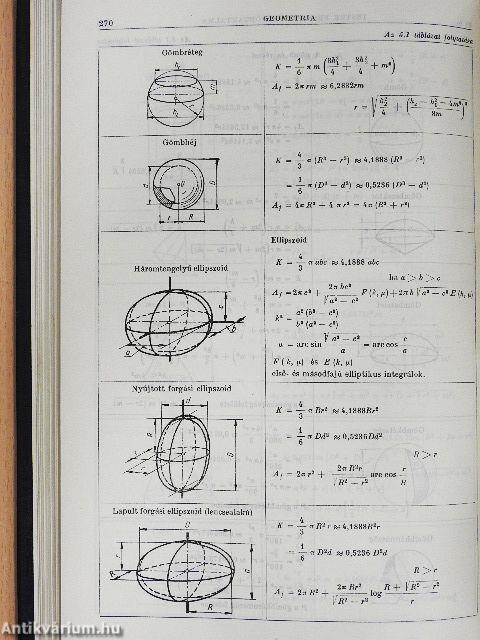 270
GEOMETRIA
Az 5.1 táblázat folytatása
Gömbréteg
K = 1/6 π m (3h₁²/4 + 3h₂²/4 + m²)
A_f = 2π rm ≈ 6,2832rm
Gömbhéj
K = 4/3 π (R³ − r³) ≈ 4,1888 (R³ − r³)
= 1/6 π (D³ − d³) ≈ 0,5236 (D³ − d³)
A_f = 4π R² + 4 π r² = 4π (R² + r²)
Ellipszoid
Háromtengelyű ellipszoid
K = 4/3 π abc ≈ 4,1888 abc
ha a > b > c
A_f = 2π c² + 2π bc²/√(a² − c²) F (k, μ) + 2π b √(a² − c²) E (k, μ)
k² = a² (b² − c²)/b² (a² − c²)
u = arc sin √(a² − c²)/a = arc cos c/a
F (k, μ) és E (k, μ)
első- és másodfajú elliptikus integrálok.
Nyújtott forgási ellipszoid
K = 4/3 π Rr² ≈ 4,1888Rr²
= 1/6 π Dd² ≈ 0,5236Dd²
R > r
A_f = 2π r² + 2π R²r/√(R² − r²) arc cos r/R
Lapult forgási ellipszoid (lencsealakú)
K = 4/3 π R²r ≈ 4,1888R²r
= 1/6 π D²d ≈ 0,5236 D²d
R > r
A_f = 2π R² + 2π Rr²/√(R² − r²) log R + √(R² − r²)/r
Antikvárium.hu